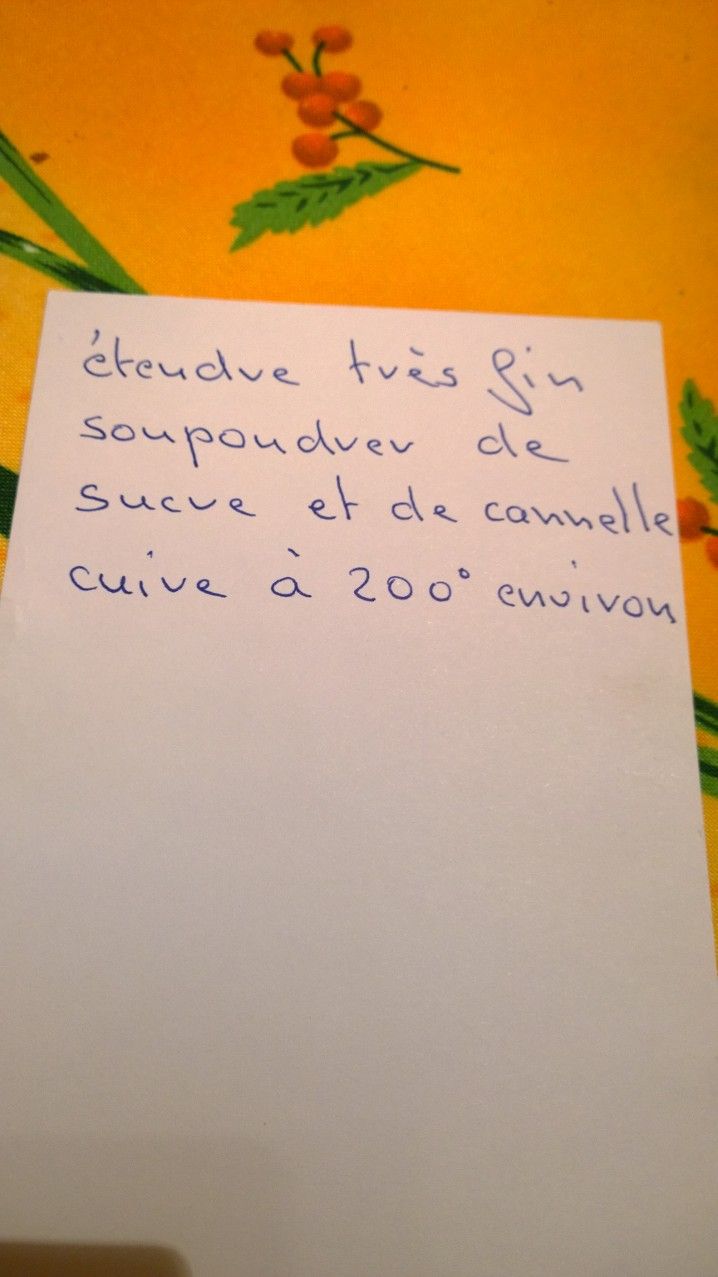 étendre très fin
soupoudrer de
sucre et de cannelle
cuire à 200° environ